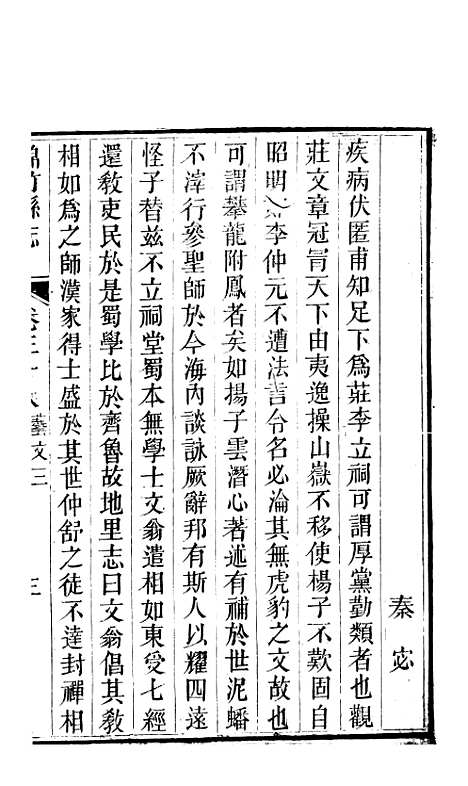 秦宓
疾病伏匿甫知足下為莊李立祠可謂厚黨勤類者也觀
莊文章冠冑天下由夷逸操山嶽不移使楊子不歎固自
昭明如李仲元不遭法言令名必淪其無虎豹之文故也
可謂攀龍附鳳者矣如揚子雲潛心著述有補於世泥蟠
不滓行參聖師於今海內談詠厥辭邦有斯人以耀四遠
怪子替茲不立祠堂蜀本無學士文翁遣相如東受七經
還敎吏民於是蜀學比於齊魯故地里志曰文翁倡其敎
相如爲之師漢家得士盛於其世仲舒之徒不達封禪相
綿竹縣志 卷三十 藝文三 三